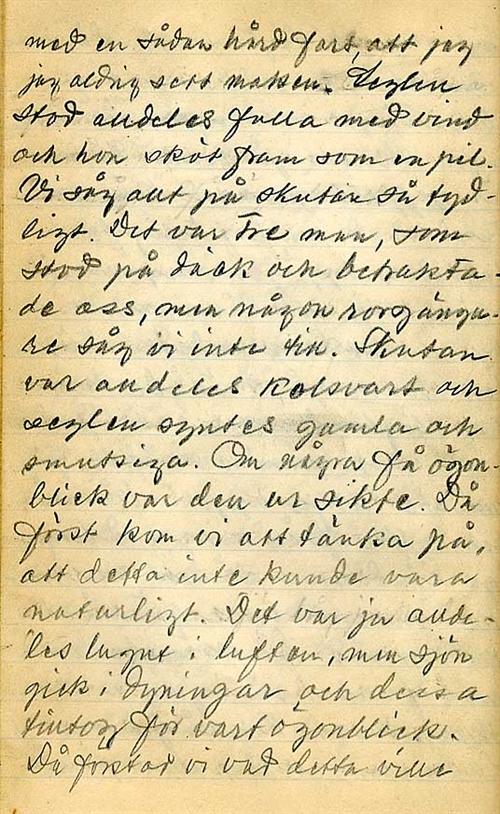 med en sådan hård fart, att jag
jag aldrig sett maken. Seglen
stod alldeles fulla med vind
och hon sköt fram som en pil.
Vi såg allt på skutan så tyd-
ligt. Det var tre man, som
stod på däck och betrakta-
de oss, men någon rorgänga-
re såg vi inte till. Skutan
var alldeles kolsvart och
seglen syntes gamla och
smutsiga. Om några få ögon-
blick var den ur sikte. Då
först kom vi att tänka på,
att detta inte kunde vara
naturligt. Det var ju allde-
les lugnt i luften, men sjön
gick i dyningar och dessa
tilltog för vart ögonblick.
Då förstod vi vad detta ville